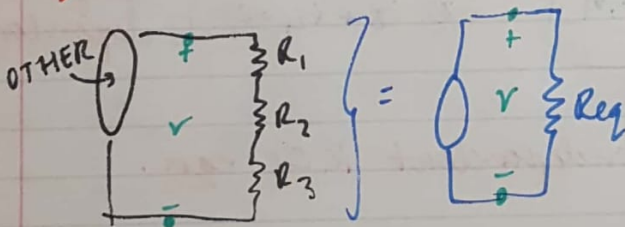 OTHER
+
R1
V
R2
-
R3
=
+
V
Req
-